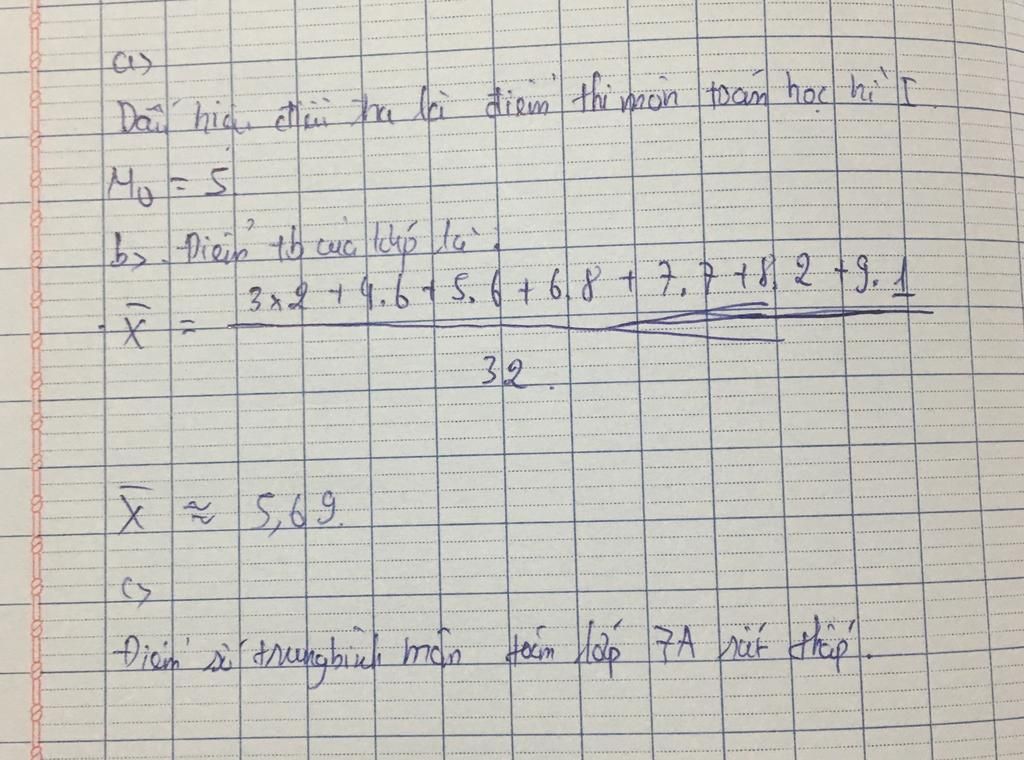 a>
Dấu hiệu điều tra là điểm thi môn toán học kì I
M₀ = 5
b> Điểm tb của lớp là:
X̄ = (3×2 + 4.6 + 5.6 + 6.8 + 7.7 + 8.2 + 9.1) / 32.
X̄ ≈ 5,69.
c>
Điểm số trung bình môn toán lớp 7A rất thấp.